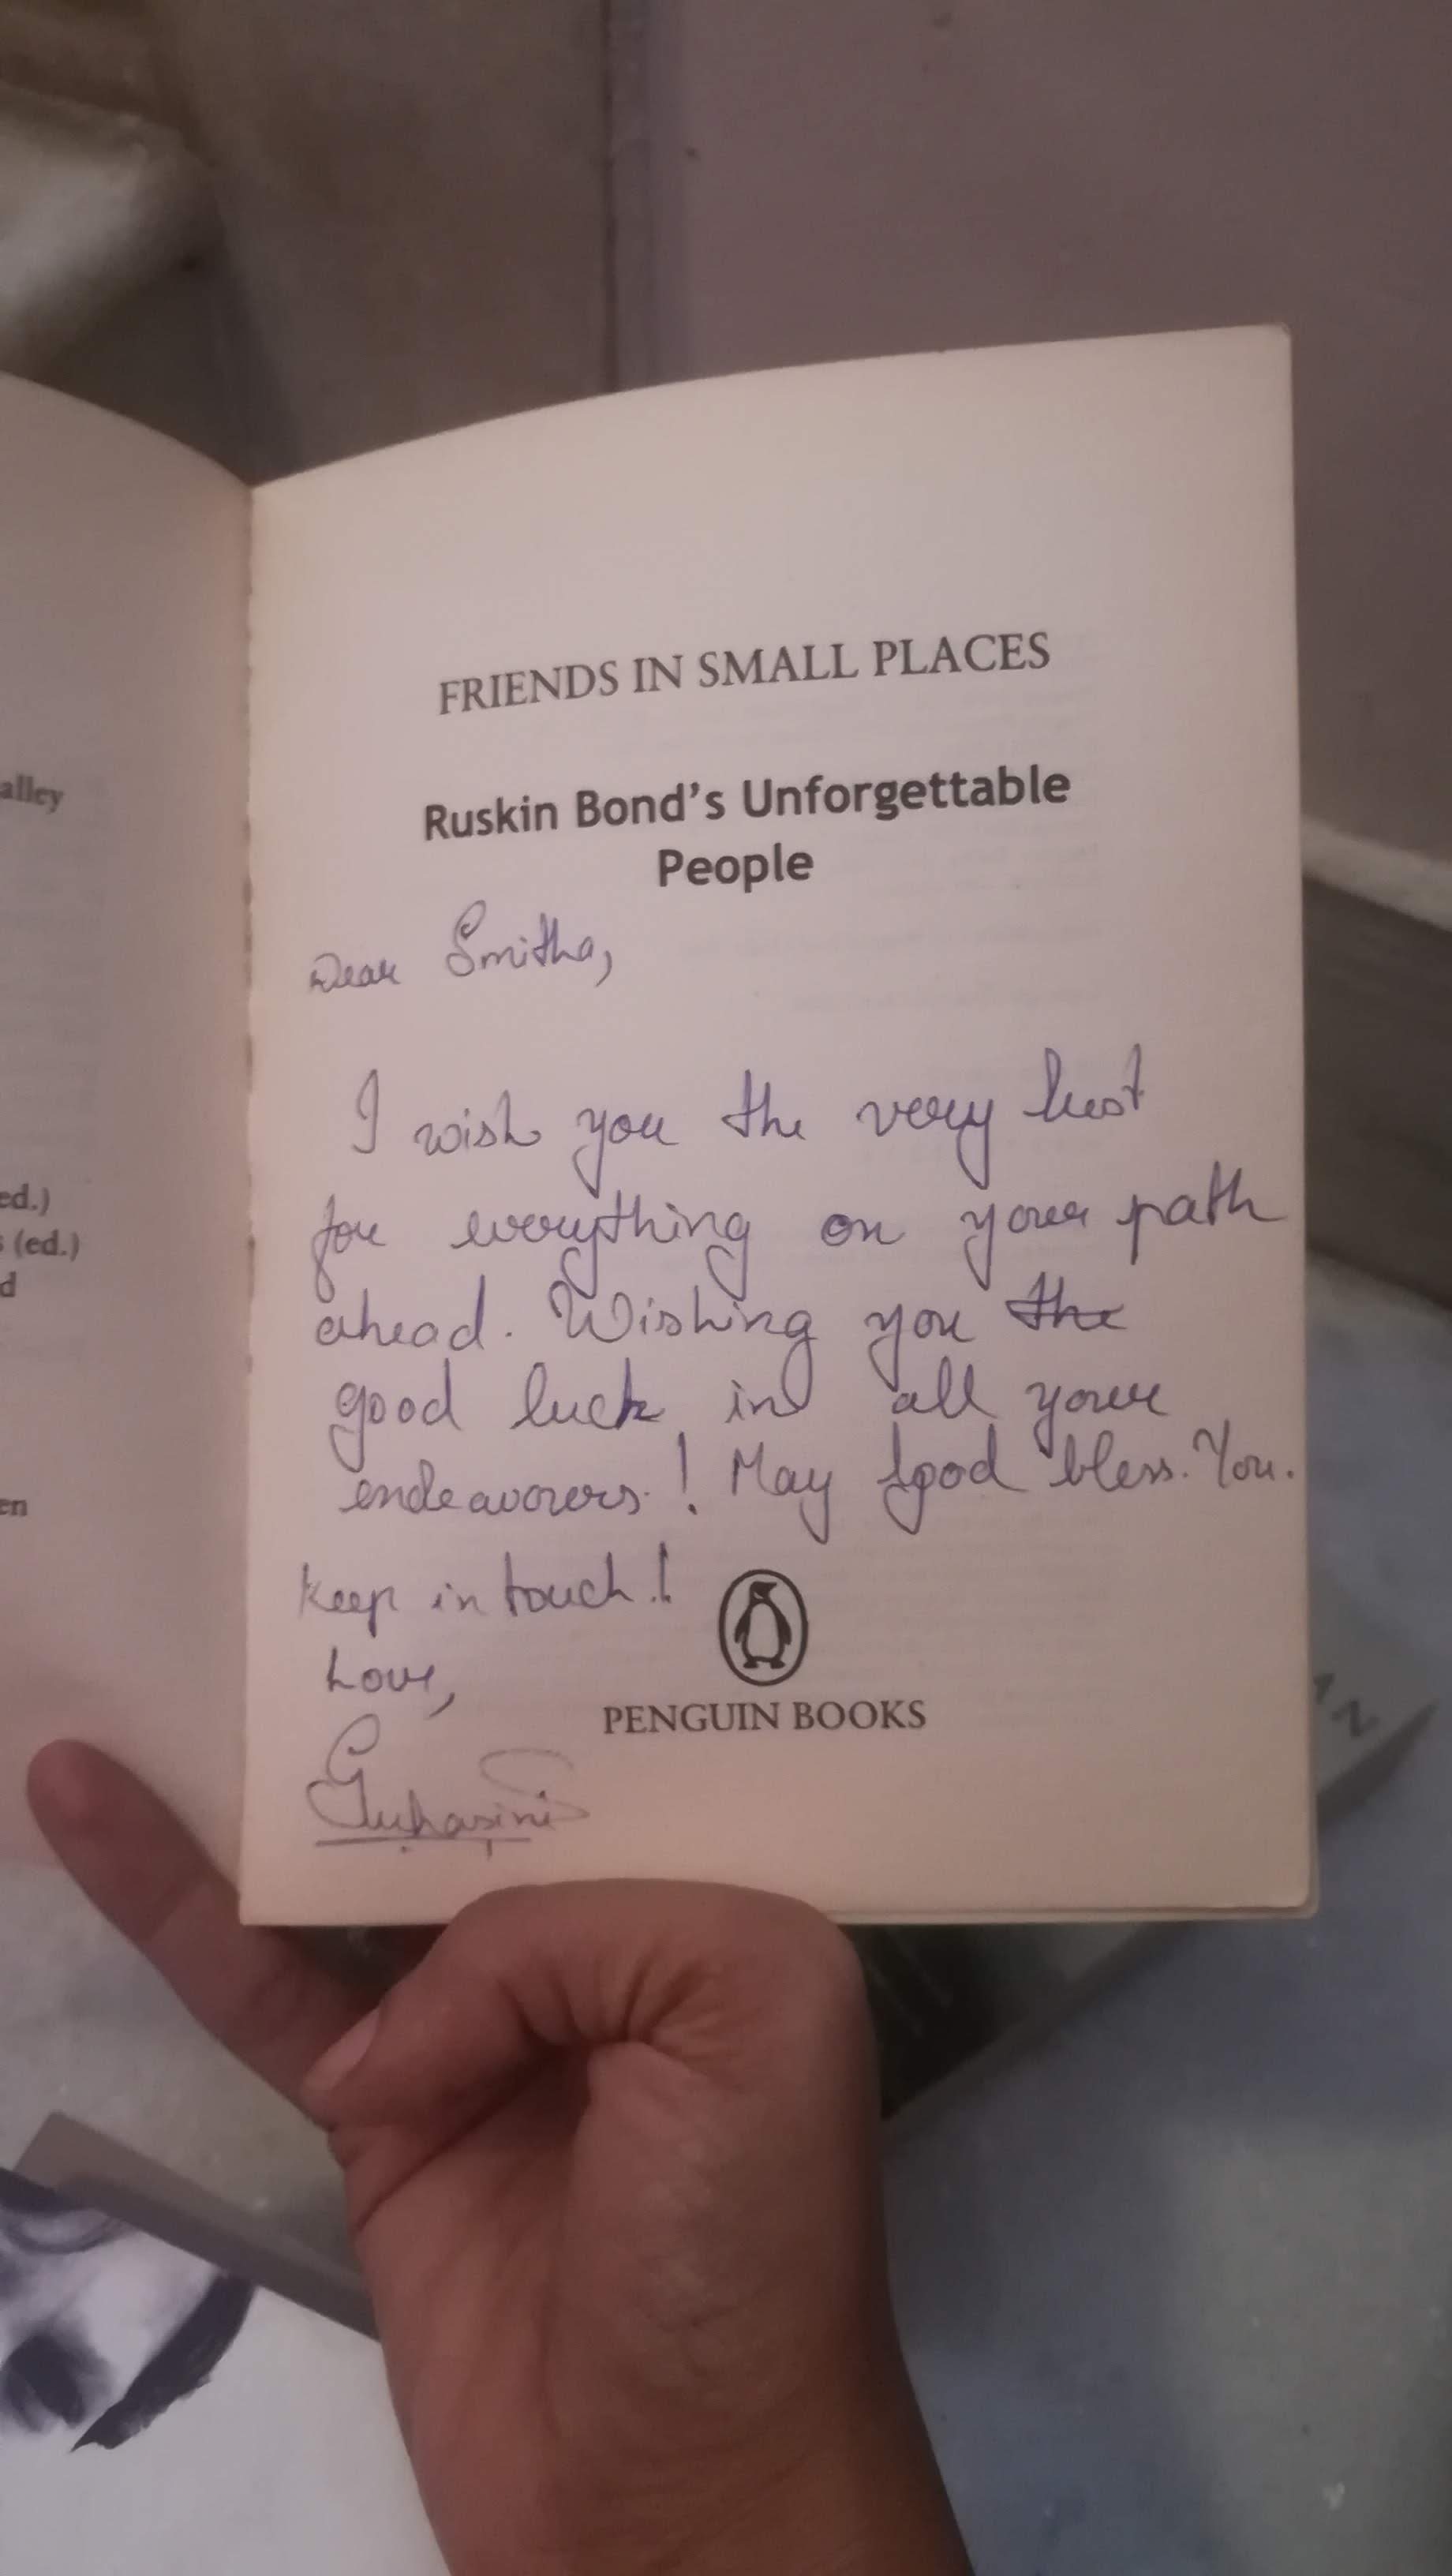 alley
ed.)
s (ed.)
d
en
FRIENDS IN SMALL PLACES
Ruskin Bond's Unforgettable
People
Dear Smitha,
I wish you the very best
for everything on your path
ahead. Wishing you the
good luck in all your
endeavours! May good bless. You.
Keep in touch!
Love,
PENGUIN BOOKS